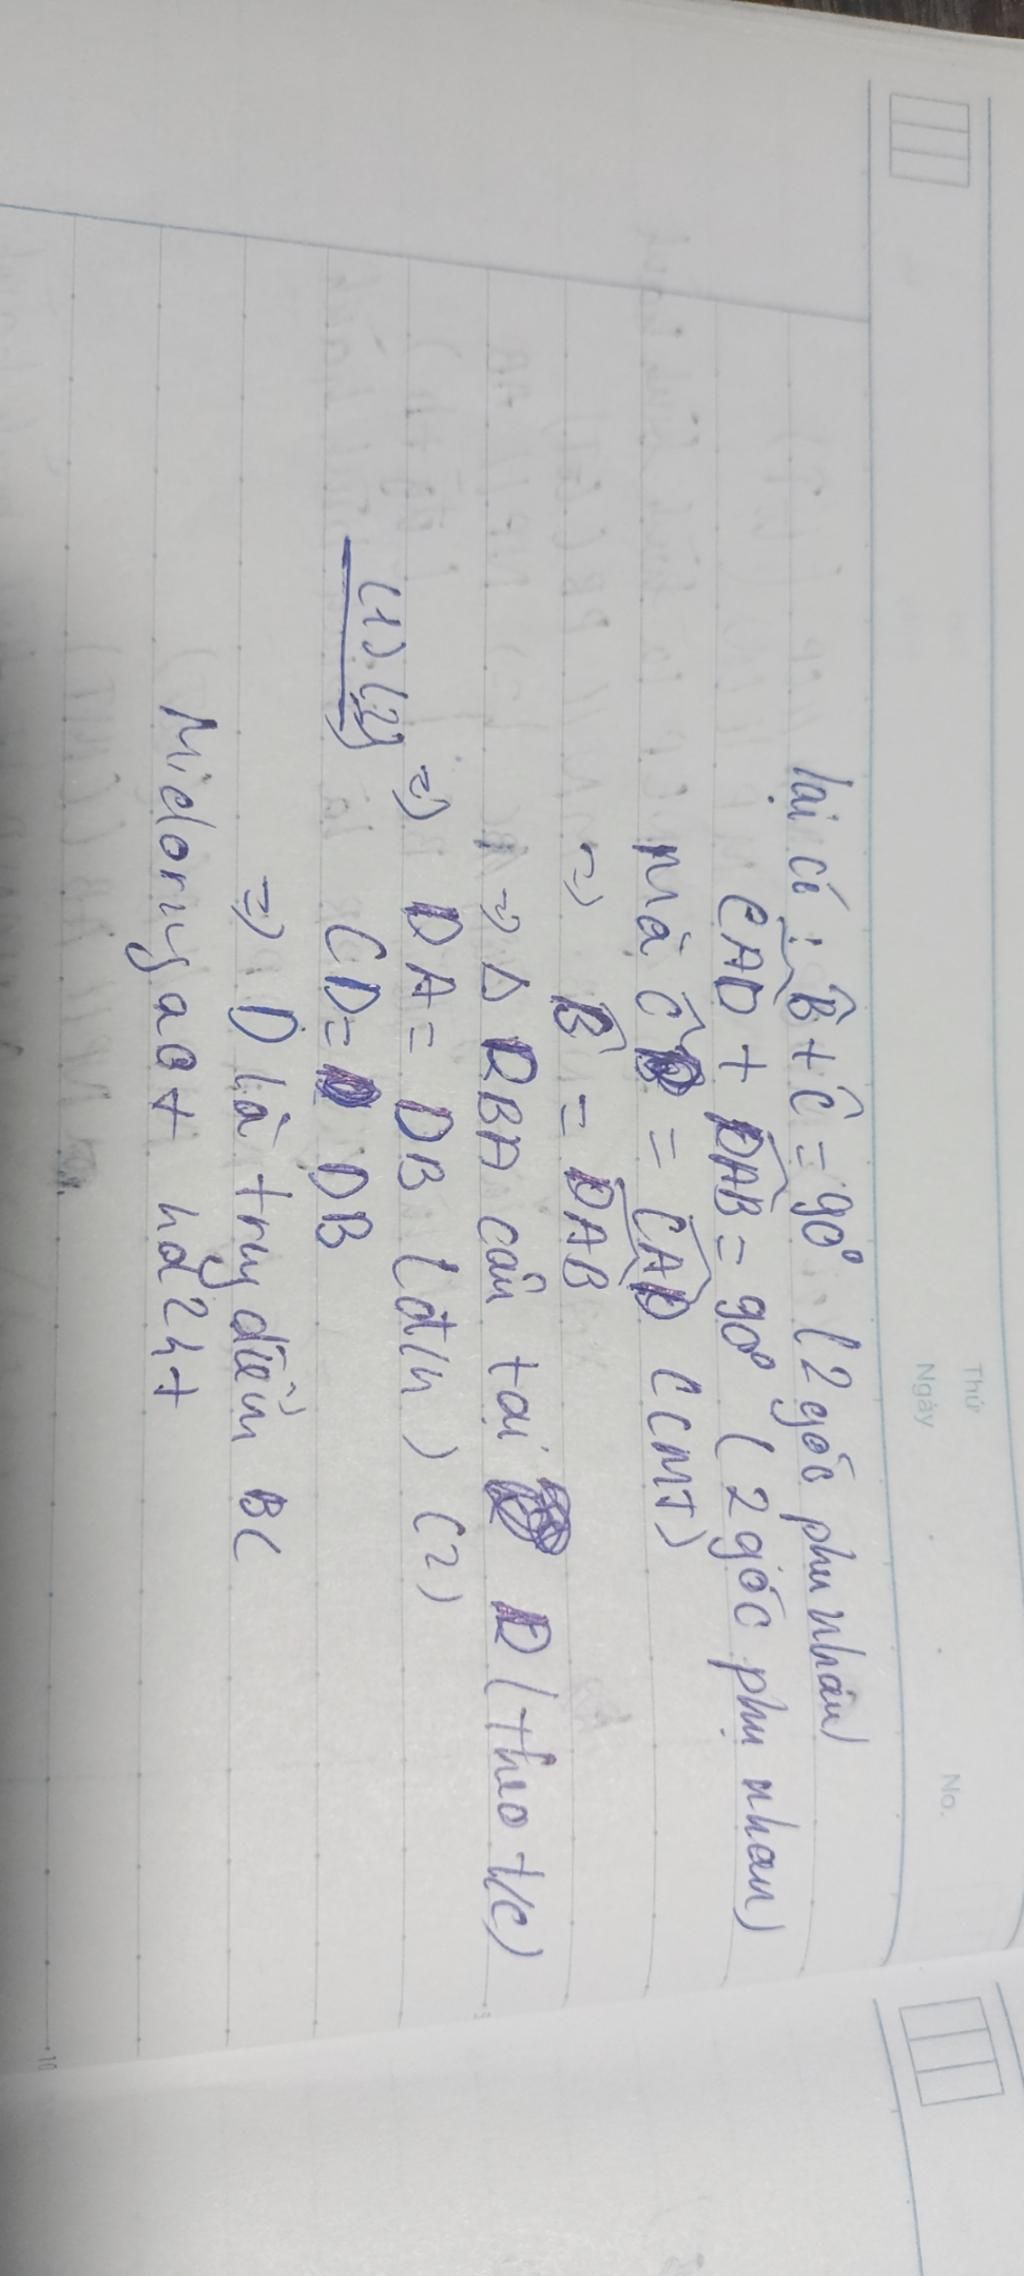 Thứ
Ngày
No.
lại có : B̂ + Ĉ = 90° (2 góc phụ nhau)
CAD + DAB = 90° (2 góc phụ nhau)
mà Ĉ = CAD (CMT)
=> B̂ = DAB
=> Δ DBA cân tại D (theo t/c)
=> DA = DB (đ/n) (2)
(1) (2)
CD = DB
=> D là trug điểm BC
10